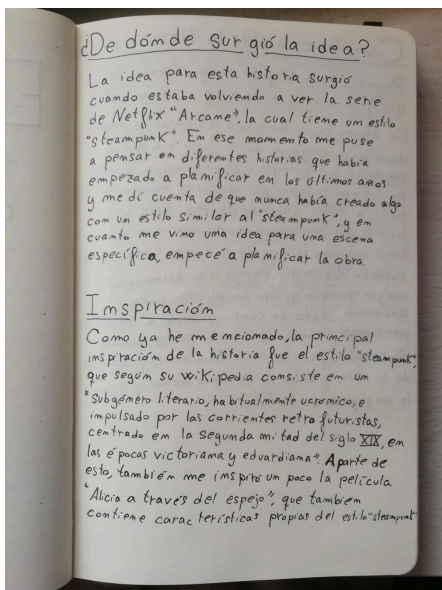 ¿De dónde surgió la idea?
La idea para esta historia surgió
cuando estaba volviendo a ver la serie
de Netflix "Arcane", la cual tiene un estilo
"steampunk". En ese momento me puse
a pensar en diferentes historias que había
empezado a planificar en los últimos años
y me dí cuenta de que nunca había creado algo
con un estilo similar al "steampunk", y en
cuanto me vino una idea para una escena
específica, empecé a planificar la obra.
Inspiración
Como ya he mencionado, la principal
inspiración de la historia fue el estilo "steampunk",
que según su wikipedia consiste en un
"Subgénero literario, habitualmente ucrónico, e
impulsado por las corrientes retro futuristas,
centrado en la segunda mitad del siglo XIX, en
las épocas victoriana y eduardiana". Aparte de
esto, también me inspiro un poco la película
"Alicia a través del espejo", que tambien
contiene características propias del estilo "steampunk"